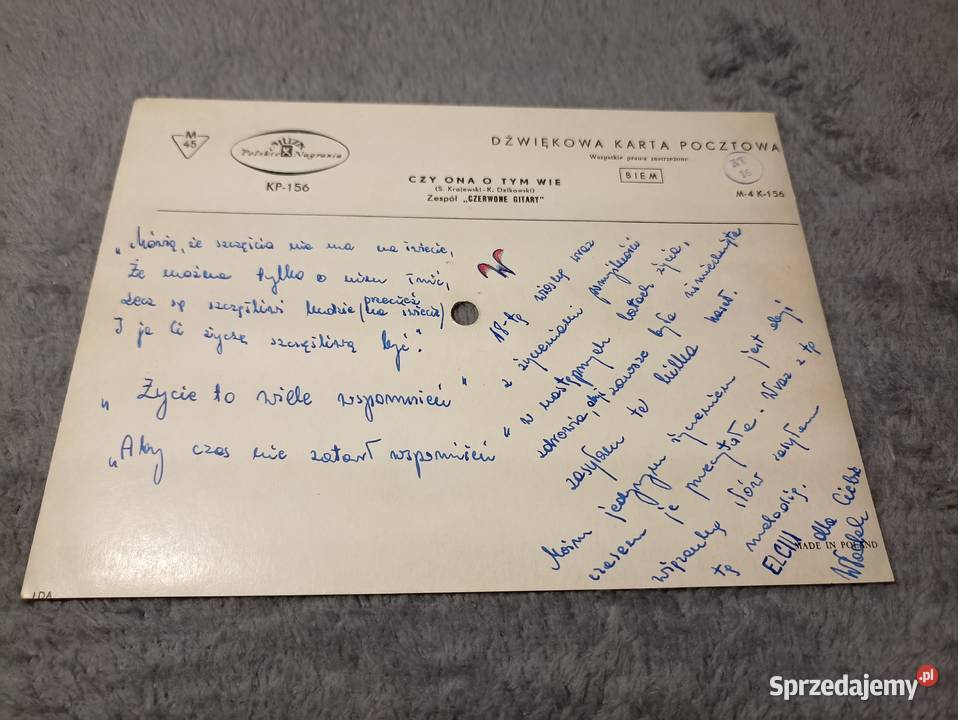 M
45
MUZA
Polskie K Nagrania
KP-156
DŹWIĘKOWA KARTA POCZTOWA
Wszystkie prawa zastrzeżone
BIEM
XT
16
M-4 K-156
CZY ONA O TYM WIE
(S. Krajewski - K. Dzikowski)
Zespół „CZERWONE GITARY"
„Mówią, że szczęścia nie ma na świecie,
Że można tylko o nim śnić,
Lecz są szczęśliwi ludzie (przecież na świecie)
I ja Ci życzę szczęśliwą być."
„Życie to wiele wspomnień"
„Aby czas nie zatarł wspomnień"
W
18-tą wiosnę wraz
z życzeniami pomyślności
w następnych latach życia,
zdrowia, abyś zawsze była uśmiechnięta
zasyłam te kilka haseł.
Moim jedynym życzeniem jest abyś
czasem je przeczytała. Wraz z tą
wiązanką słów zasyłam
tą melodię.
ELCIU dla Ciebie
MADE IN POLAND
LDA
Sprzedajemy.pl